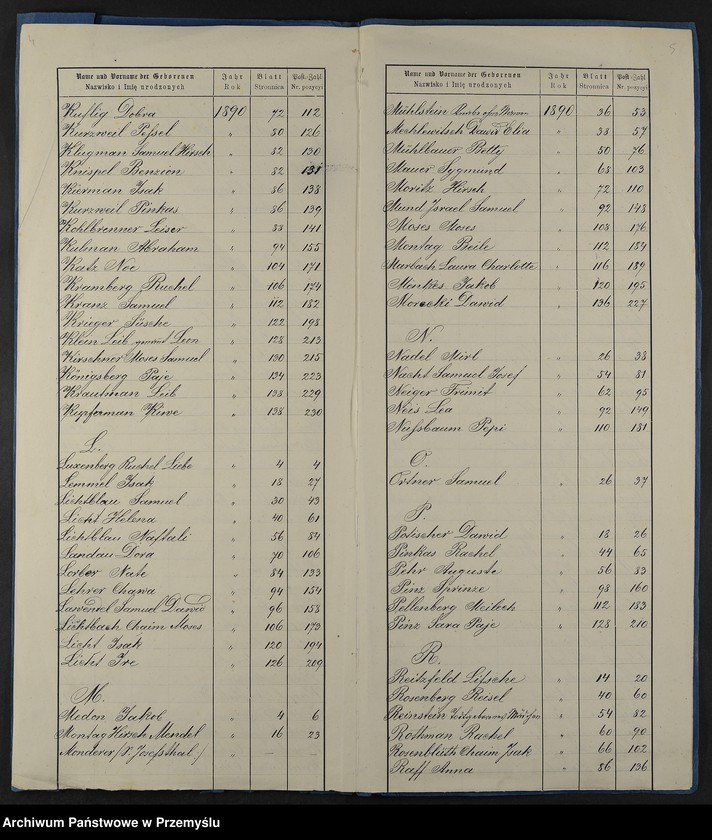 4
Name und Vorname der Geborenen Jahr Blatt Post-Zahl
Nazwisko i Imię urodzonych Rok Stronnica Nr. pozycyi
Kuflig Dobra 1890 72 112
Kurzweil Pessel " 80 126
Klugman Samuel Hirsch " 82 130
Knispel Benzion " 82 131
Kierman Isak " 86 138
Kurzweil Pinkas " 86 139
Kohlbrenner Leiser " 88 141
Kulman Abraham " 94 155
Katz Noe " 104 171
Kramberg Ruchel " 106 174
Kranz Samuel " 112 182
Krieger Süsche " 122 198
Klein Leib Leon " 128 213
Kirschner Moses Samuel " 130 215
Königsberg Paje " 134 223
Krautman Leib " 138 229
Kupferman Kiwe " 138 230
L.
Luxenberg Ruchel Liebe " 4 4
Lemmel Isak " 18 27
Lichtblau Samuel " 30 43
Licht Helena " 40 61
Lichtblau Naftali " 56 84
Landau Dora " 70 106
Lorber Nate " 84 133
Lehrer Chawa " 94 154
Lawendel Samuel Dawid " 96 158
Lichtbach Chaim Moses " 106 173
Licht Isak " 120 194
Licht Ire " 126 209
M.
Medon Jakob " 4 6
Montag Hirsch Mendel " 16 23
Monderer /v. Josefsthal/ " — —
5
Name und Vorname der Geborenen Jahr Blatt Post-Zahl
Nazwisko i Imię urodzonych Rok Stronnica Nr. pozycyi
Mühlstein 1890 36 53
Mechlewitsch Dawid Elia " 38 57
Mühlbauer Betty " 50 76
Mauer Sygmund " 68 103
Moritz Hersch " 72 110
Mund Israel Samuel " 92 148
Moses Moses " 108 176
Montag Beile " 112 184
Marbach Laura Charlotte " 116 189
Menkes Jakob " 120 195
Morecki Dawid " 136 227
N.
Nadel Mirl " 26 38
Nacht Samuel Josef " 54 81
Neiger Frimit " 62 95
Neis Lea " 92 149
Nußbaum Pepi " 110 181
O.
Ortner Samuel " 26 37
P.
Potischer Dawid " 18 26
Pinkas Rachel " 44 65
Pehr Auguste " 56 83
Pinz Sprinze " 98 160
Pellenberg Meilech " 112 183
Pinz Sara Paje " 128 210
R.
Reitzfeld Litsche " 14 20
Rosenberg Reisel " 40 60
Reinstein Todtgeborenes Mädchen " 54 82
Rothman Rachel " 60 90
Rosenblüth Chaim Isak " 66 102
Raff Anna " 86 136
Archiwum Państwowe w Przemyślu